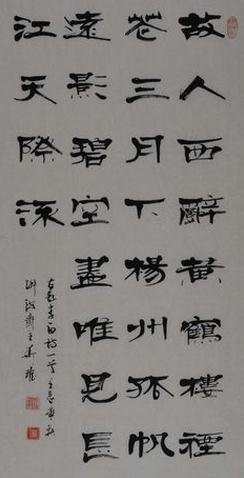 故人西辭黃鶴樓煙
花三月下楊州孤帆
遠影碧空盡唯見長
江天際流
李白詩一首